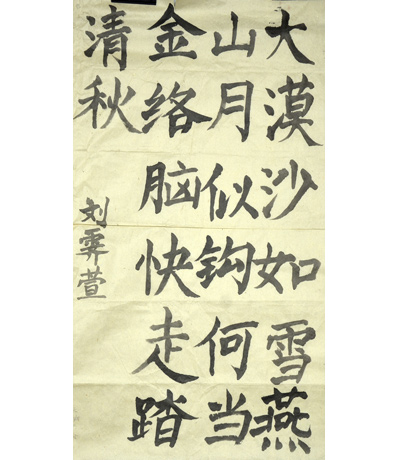 大漠沙如雪燕
山月似钩何当
金络脑快走踏
清秋
刘霁萱